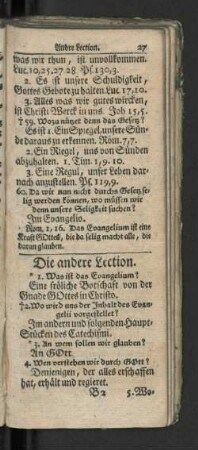 Andre Lection. 27
was wir thun, ist unvollkommen.
Luc. 10, 25, 27 28 Ps. 130, 3.
2. Es ist unsere Schuldigkeit,
Gottes Gebote zu halten. Luc. 17, 10.
3. Alles was wir gutes wircken,
ist Christi Werck in uns. Joh 15, 5.
† 59. Wozu nützet denn das Gesetz?
Es ist 1. Ein Spiegel, unsere Sün-
de daraus zu erkennen. Röm. 7, 7.
2. Ein Riegel, uns von Sünden
abzuhalten. 1. Tim. 1, 9. 10.
3. Eine Regul, unser Leben dar-
nach anzustellen. Ps. 119, 9.
60. Da wir nun nicht durchs Gesetz se-
lig werden können, wo müssen wir
denn unsere Seligkeit suchen?
Im Evangelio.
Rom. 1, 16. Das Evangelium ist eine
Kraft GOttes, die da selig macht alle, die
daran glauben.
Die andere Lection.
* 1. Was ist das Evangelium?
Eine fröliche Botschaft von der
Gnade GOttes in Christo.
† 2. Wo wird uns der Inhalt des Evan-
gelii vorgestellet?
Im andern und folgenden Haupt-
Stücken des Catechismi.
* 3. An wem sollen wir glauben?
An GOtt.
4. Wen verstehen wir durch GOtt?
Denjenigen, der alles erschaffen
hat, erhält und regieret.
B 2 5. Wo-